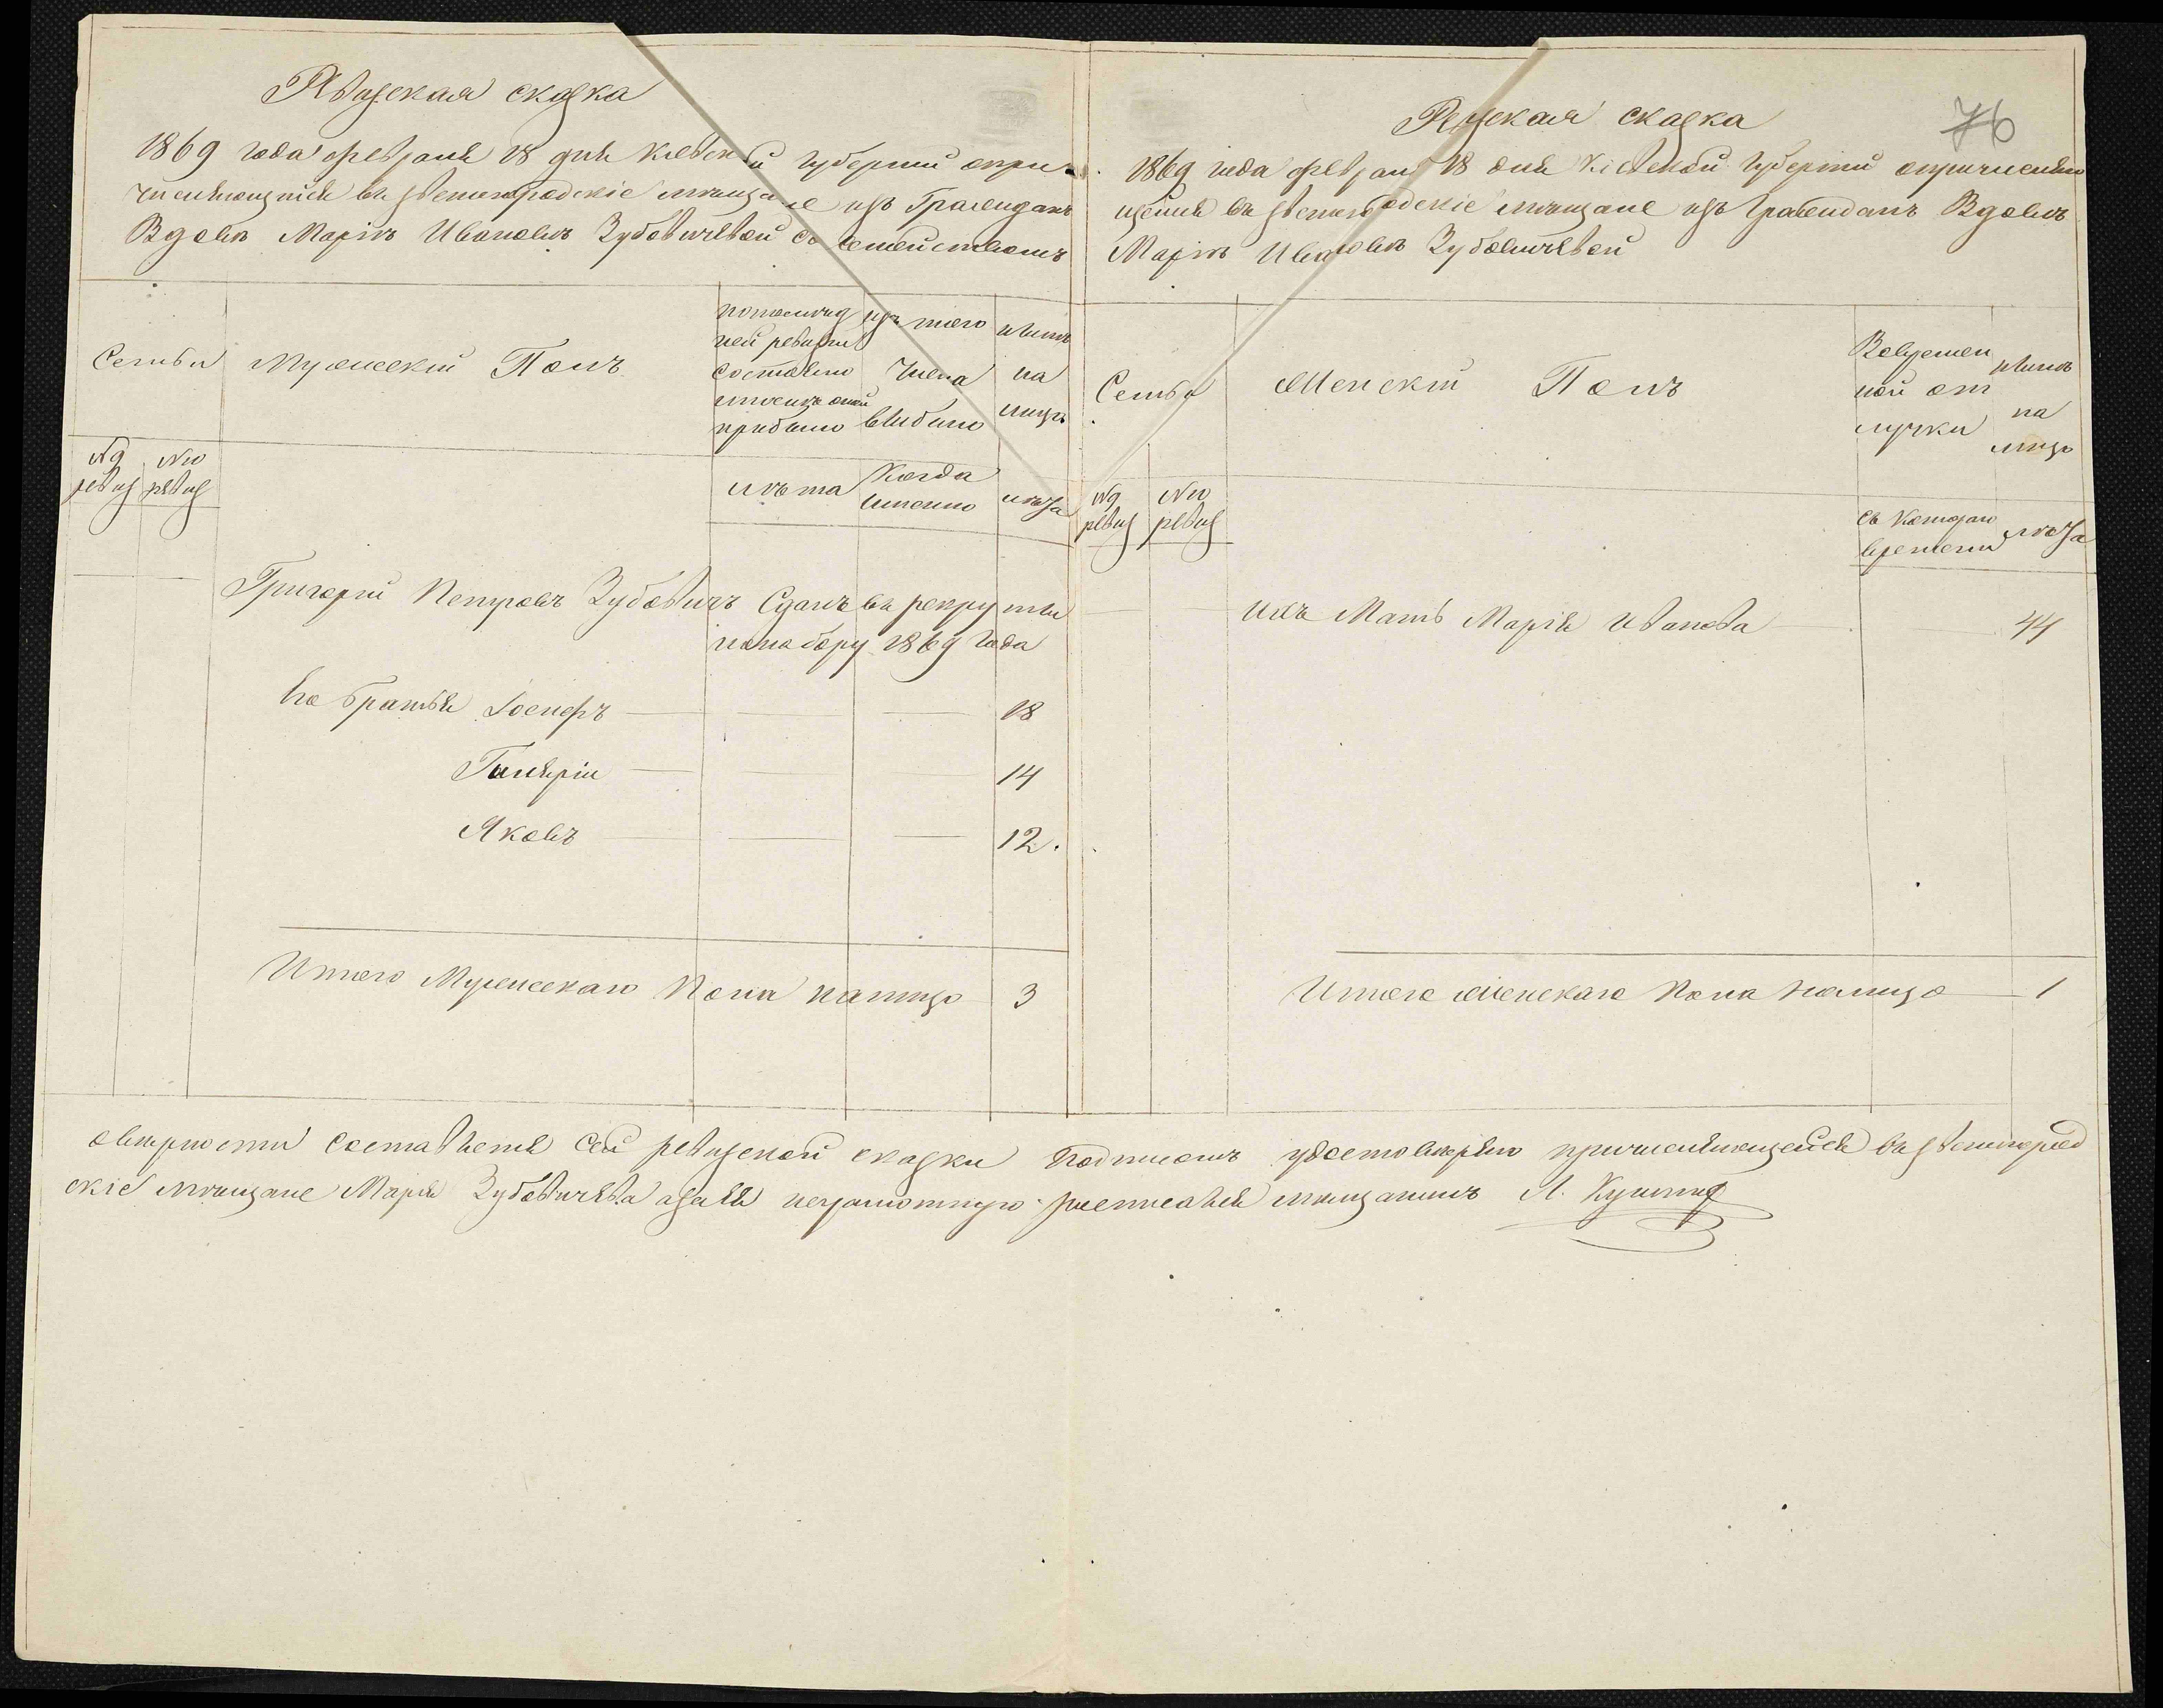 Ревизская сказка
1869 года февраля 18 дня Киевской губернии опри-
числяющейся въ звенигородскіе мещане изъ Граждань
Вдовѣ Маріѣ Ивановѣ Зубовичевой съ семействомъ
Семьи Мужескій Полъ
по последней ревизіи состояло и после оной прибыло
изъ того числа выбыло
нынѣ на лицо
№ 9 ревиз
№ 10 ревиз
лѣта
Когда именно
лѣта
Григорій Петровъ Зубовичъ Сданъ въ рекруты
по набору 1869 года
Его братья Іосифъ 18
Валерій 14
Яковъ 12.
Итого Мужескаго Пола налицо 3
76
Ревизская сказка
1869 года февраля 18 дня Кіевской губерніи опричисляю
щейся въ звенигородскіе мѣщане изъ гражданъ Вдовѣ
Маріѣ Ивановѣ Зубовичевой
Семьи Женскій Полъ
Во временной отлучки
нынѣ на лицо
№ 9 ревиз
№ 10 ревиз
съ котораго времени
лѣта
Ихъ Мать Марія Иванова 44
Итого Женскаго Пола налицо 1
о верности составленія сей ревизской сказки подписомъ удостоверяю причисляющейся въ звенигород
скіе мѣщане Марія Зубовичева а за ея неграмотную росписался мещанинъ Л.